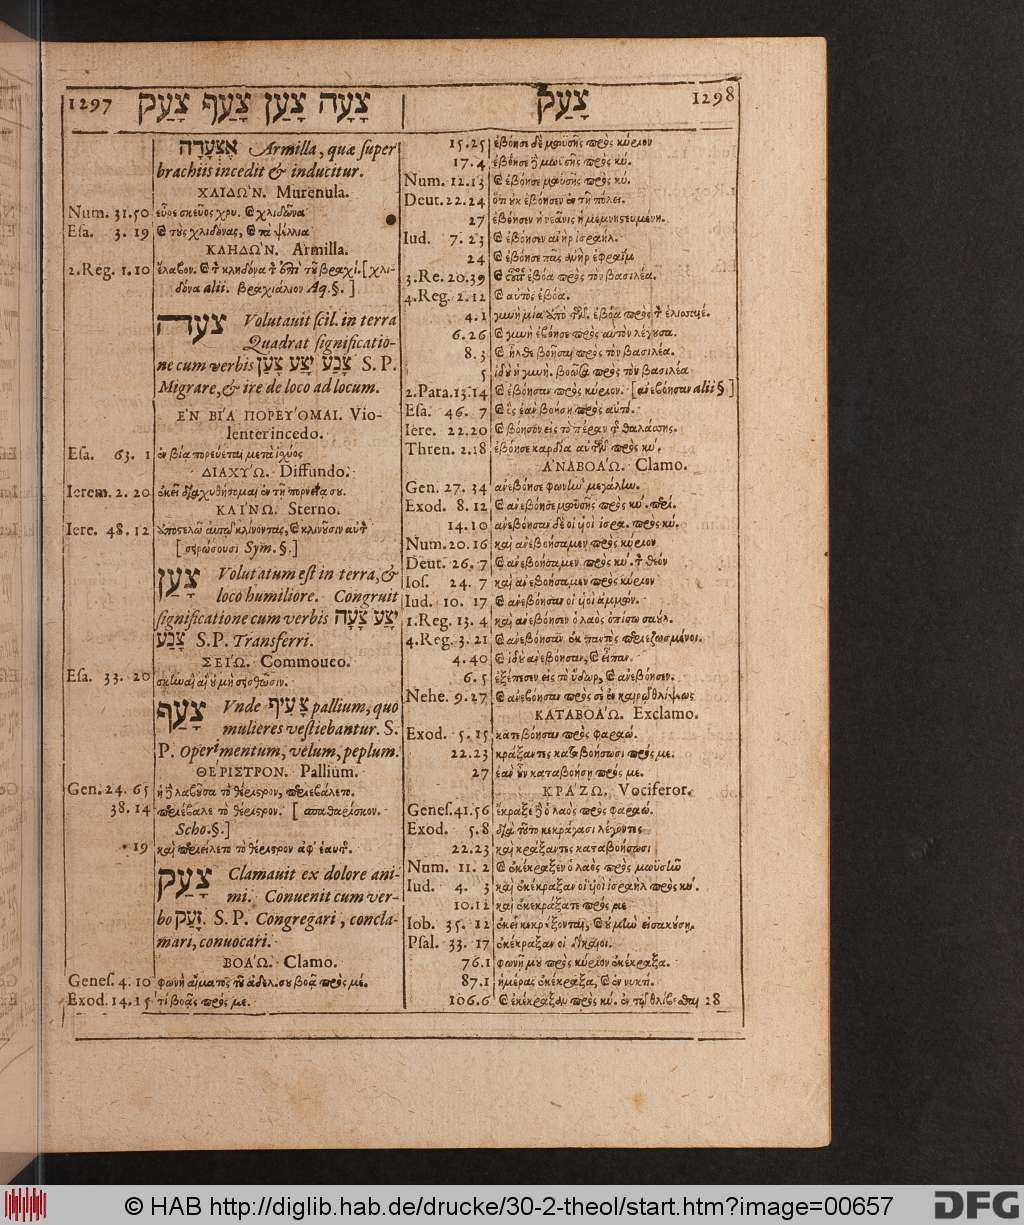 1297 צָעָה צָעַן צָעַף צָעַק
צָעַק 1298
אֶצְעָדָה Armilla, quæ super
brachiis incedit & inducitur.
ΧΛΙΔΩ'Ν. Murenula.
Num. 31.50 εὗρε σκεῦος χρυ. & χλιδῶνα
Esa. 3. 19 & τοὺς χλιδῶνας, & τὰ ψέλλια
ΚΛΗΔΩ'Ν. Armilla.
2.Reg. 1.10 ἔλαβον. & τ κληδόνα τ ἐπὶ τοῦ βραχί. [χλι-
δόνα alii. βραχιάλιον Aq.§.]
צעדה Volutauit scil. in terra
Quadrat significatio-
ne cum verbis צָעַן יָצַע צָבַע S. P.
Migrare, & ire de loco ad locum.
ΕΝ ΒΙΑ ΠΟΡΕΥ'ΟΜΑΙ. Vio-
lenter incedo.
Esa. 63. 1 ἐν βίᾳ πορεύεται μετὰ ἰχύος
ΔΙΑΧΥ'Ω. Diffundo.
Ierem. 2. 20 ἐκεῖ διαχυθήσομαι ἐν τῇ πορνείᾳ σου.
ΚΛΙ'ΝΩ. Sterno.
Iere. 48. 12 ἀποστελῶ αὐτῷ κλίνοντας, & κλινοῦσιν αὐτ
[στρώσουσι Sym. §.]
צָעַן Volutatum est in terra, &
loco humiliore. Congruit
significatione cum verbis יָצַע צָעָה
צָבַע S. P. Transferri.
ΣΕΙ'Ω. Commoueo.
Esa. 33. 20 σκηναὶ αἳ οὐ μὴ σεισθῶσιν.
צָעַף Vnde צָעִיף pallium, quo
mulieres vestiebantur. S.
P. Operimentum, velum, peplum.
ΘΕ'ΡΙΣΤΡΟΝ. Pallium.
Gen. 24. 65 ἡ λαβοῦσα τὸ θέριστρον, περιεβάλετο.
38. 14 περιέβαλε τὸ θέριστρον. [
Scho.§.]
19 καὶ περιείλετο τὸ θέριστρον ἀφ' ἑαυτ.
צָעַק Clamauit ex dolore ani-
mi. Conuenit cum ver-
bo זָעַק. S. P. Congregari, concla-
mari, conuocari.
ΒΟΑ'Ω. Clamo.
Genes. 4. 10 φωνὴ αἵματος τοῦ ἀδελ. σου βοᾷ πρός μέ.
Exod. 14. 15 τί βοᾷς πρός με.
15.25 ἐβόησε δὲ μωϋσῆς πρὸς κύριον
17.4 ἐβόησε μωϋσῆς πρὸς κύ.
Num. 12.13 & ἐβόησε μωϋσῆς πρὸς κύ.
Deut. 22.24 ὅτι οὐκ ἐβόησεν ἐν τῇ πόλει.
27 ἐβόησεν ἡ νεᾶνις ἡ μεμνηστευμένη.
Iud. 7. 23 & ἐβόησεν ἀνὴρ ἰσραήλ.
24 & ἐβόησε πᾶς ἀνὴρ ἐφραΐμ
3.Re. 20.39 & οὗτος ἐβόα πρὸς τὸν βασιλέα.
4.Reg. 2.12 & αὐτὸς ἐβόα.
4.1 γυνὴ μία ἀπὸ ἐβόα πρὸς τ ἐλισσαιέ.
6.26 & γυνὴ ἐβόησε πρὸς αὐτὸν λέγουσα.
8. 3 & ἦλθε βοῆσαι πρὸς τὸν βασιλέα.
5 ἰδοὺ ἡ γυνὴ. βοῶσα πρὸς τὸν βασιλέα
2.Para. 13.14 & ἐβόησαν πρὸς κύριον. [ἀνεβόησαν alii §.]
Esa. 46. 7 & ὃς ἐὰν βοήσῃ πρὸς αὐτό.
Iere. 22.20 & βόησον εἰς τὸ πέραν τ θαλάσσης.
Thren. 2.18 ἐβόησε καρδία αὐτῶν πρὸς κύ.
ΑΝΑΒΟΑ'Ω. Clamo.
Gen. 27. 34 ἀνεβόησε φωνὴν μεγάλην.
Exod. 8. 12 & ἀνεβόησε μωϋσῆς πρὸς κύ. περί.
14.10 ἀνεβόησαν δὲ οἱ υἱοὶ ἰσρα. πρὸς κύ.
Num. 20.16 καὶ ἀνεβοήσαμεν πρὸς κύριον
Deut. 26. 7 & ἀνεβοήσαμεν πρὸς κύ. τ θεόν
Ios. 24. 7 καὶ ἀνεβοήσαμεν πρὸς κύριον
Iud. 10. 17 & ἀνεβόησαν οἱ υἱοὶ ἀμμών.
1.Reg. 13. 4 καὶ ἀνεβόησεν ὁ λαὸς ὀπίσω σαούλ.
4.Reg. 3. 21 & ἀνεβόησαν ἐκ παντὸς περιεζωσμένοι.
4. 40 & ἰδοὺ ἀνεβόησαν, & εἶπαν.
6. 5 ἐξέπεσεν εἰς τὸ ὕδωρ, & ἀνεβόησεν.
Nehe. 9.27 & ἀνεβόησαν πρὸς σὲ ἐν καιρῷ θλίψεως
ΚΑΤΑΒΟΑ'Ω. Exclamo.
Exod. 5. 15 κατεβόησαν πρὸς φαραώ.
22.23 κράξαντες καταβοήσωσι πρός με.
27 ἐὰν οὖν καταβοήσῃ πρός με.
ΚΡΑ'ΖΩ. Vociferor.
Genes. 41.56 ἔκραξε ὁ λαὸς πρὸς φαραώ.
Exod. 5.8 διὰ τοῦτο κεκράγασι λέγοντες
22.23 καὶ κράξαντες καταβοήσωσι
Num. 11. 2 & ἐκέκραξεν ὁ λαὸς πρὸς μωϋσῆν
Iud. 4. 3 καὶ ἐκέκραξαν οἱ υἱοὶ ἰσραὴλ πρὸς κύ.
10.12 καὶ ἐκεκράξατε πρός με
Iob. 35. 12 ἐκεῖ κεκράξονται, & οὐ μὴ εἰσακούσῃ.
Psal. 33. 17 ἐκέκραξαν οἱ δίκαιοι.
76.1 φωνῇ μου πρὸς κύριον ἐκέκραξα.
87.1 ἡμέρας ἐκέκραξα, & ἐν νυκτί.
106.6 & ἐκέκραξαν πρὸς κύ. ἐν τῷ θλίβεσθαι 28
© HAB http://diglib.hab.de/drucke/30-2-theol/start.htm?image=00657
DFG